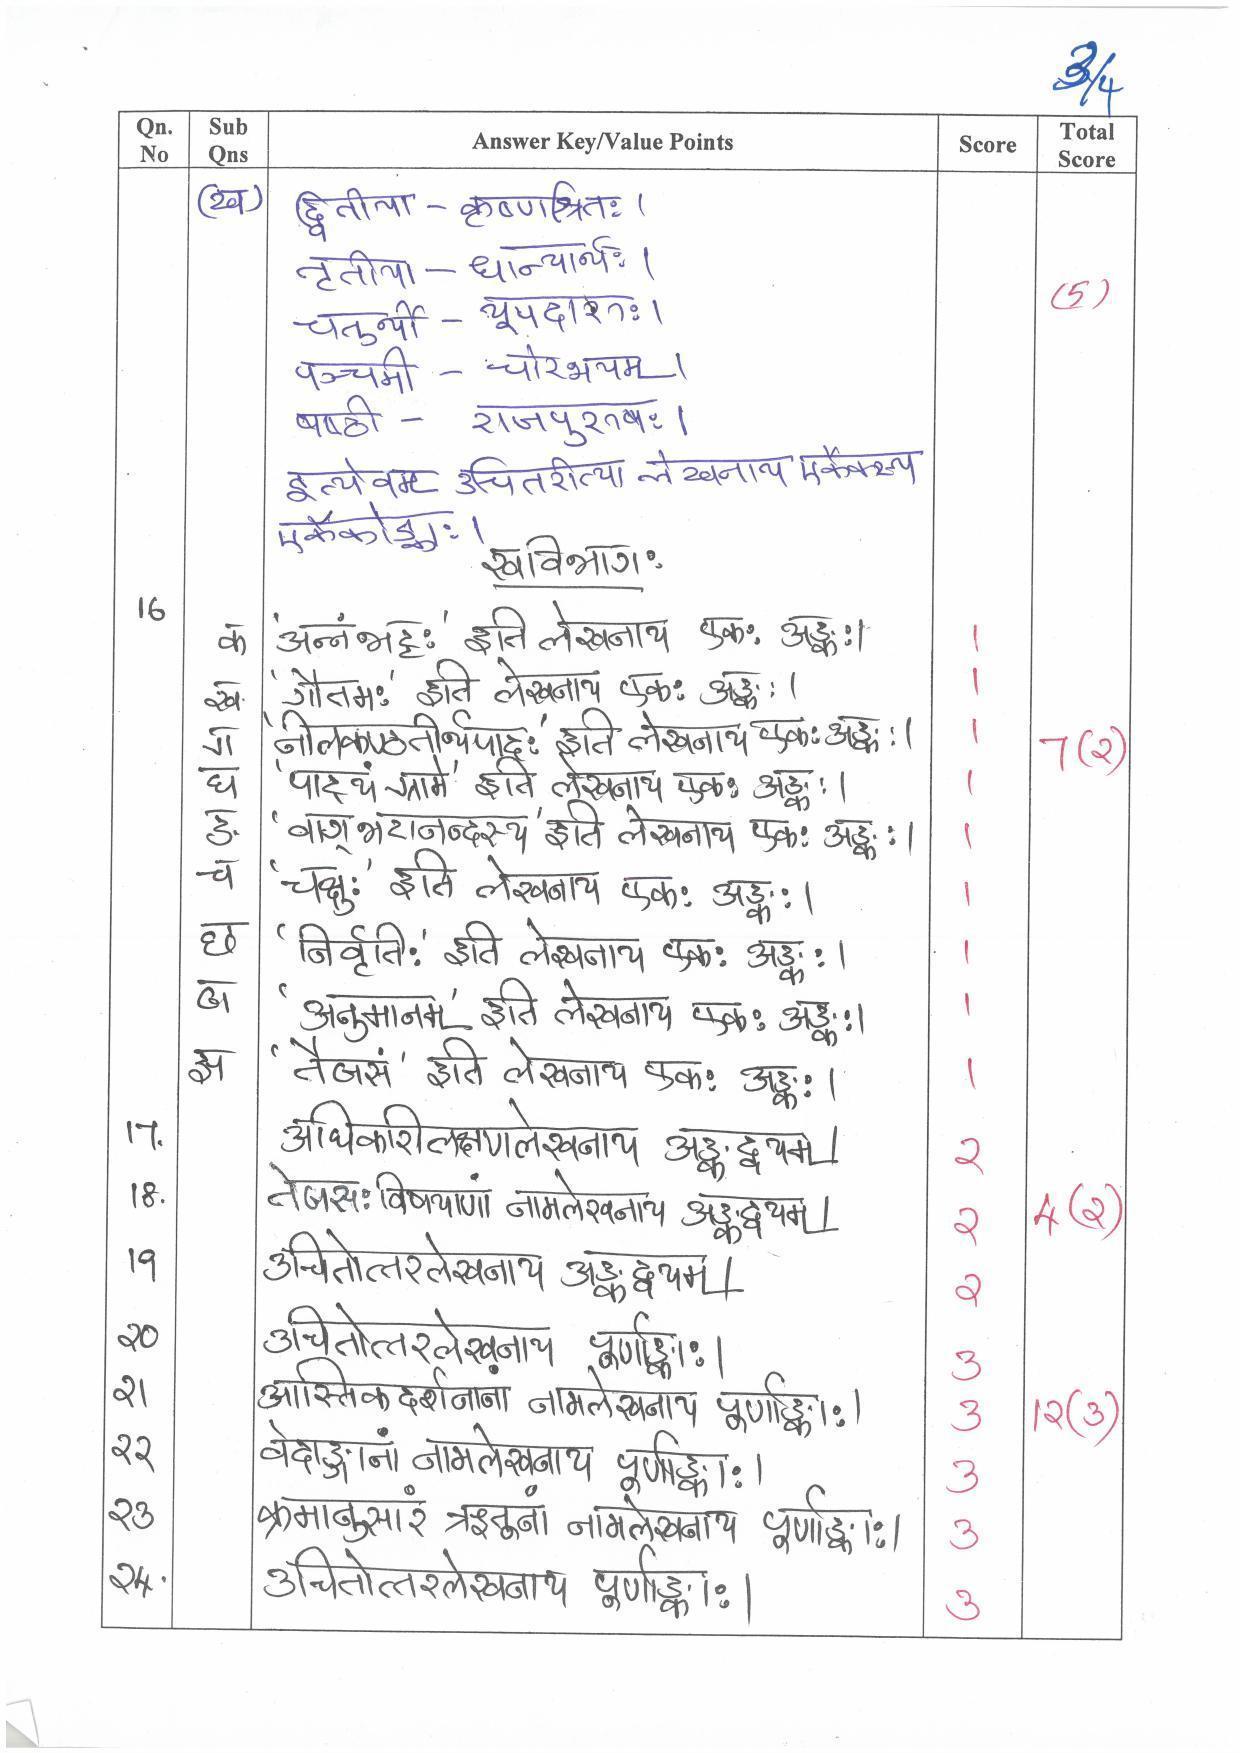 3/4
Qn. No Sub Qns Answer Key/Value Points Score Total Score
(ख) द्वितीया - कृष्णश्रितः ।
तृतीया - धान्यार्थः ।
(5)
चतुर्थी - यूपदारुः ।
पञ्चमी - चोरभयम् ।
षष्ठी - राजपुरुषः ।
इत्येवम् उचितरीत्या लेखनाय एकैकस्य
एकैकोऽङ्कः ।
खविभागः
16
क 'अन्नंभट्टः' इति लेखनाय एकः अङ्कः । 1
ख 'गौतमः' इति लेखनाय एकः अङ्कः । 1
ग 'नीलकण्ठतीर्थपादः' इति लेखनाय एकः अङ्कः । 1 7(2)
घ 'पाट्यं ग्रामे' इति लेखनाय एकः अङ्कः । 1
ङ 'वाग्भटानन्दस्य' इति लेखनाय एकः अङ्कः । 1
च 'चक्षुः' इति लेखनाय एकः अङ्कः । 1
छ 'निर्वृतिः' इति लेखनाय एकः अङ्कः । 1
ज 'अनुमानम्' इति लेखनाय एकः अङ्कः । 1
झ 'तैजसं' इति लेखनाय एकः अङ्कः । 1
17. अधिकारिलक्षणलेखनाय अङ्कद्वयम् । 2
18. तेजसः विषयाणां नामलेखनाय अङ्कद्वयम् । 2 4(2)
19 उचितोत्तरलेखनाय अङ्कद्वयम् । 2
20 उचितोत्तरलेखनाय पूर्णाङ्काः । 3
21 आस्तिकदर्शनानां नामलेखनाय पूर्णाङ्काः । 3 12(3)
22 वेदाङ्गानां नामलेखनाय पूर्णाङ्काः । 3
23 क्रमानुसारं ऋतूनां नामलेखनाय पूर्णाङ्काः । 3
24. उचितोत्तरलेखनाय पूर्णाङ्काः । 3